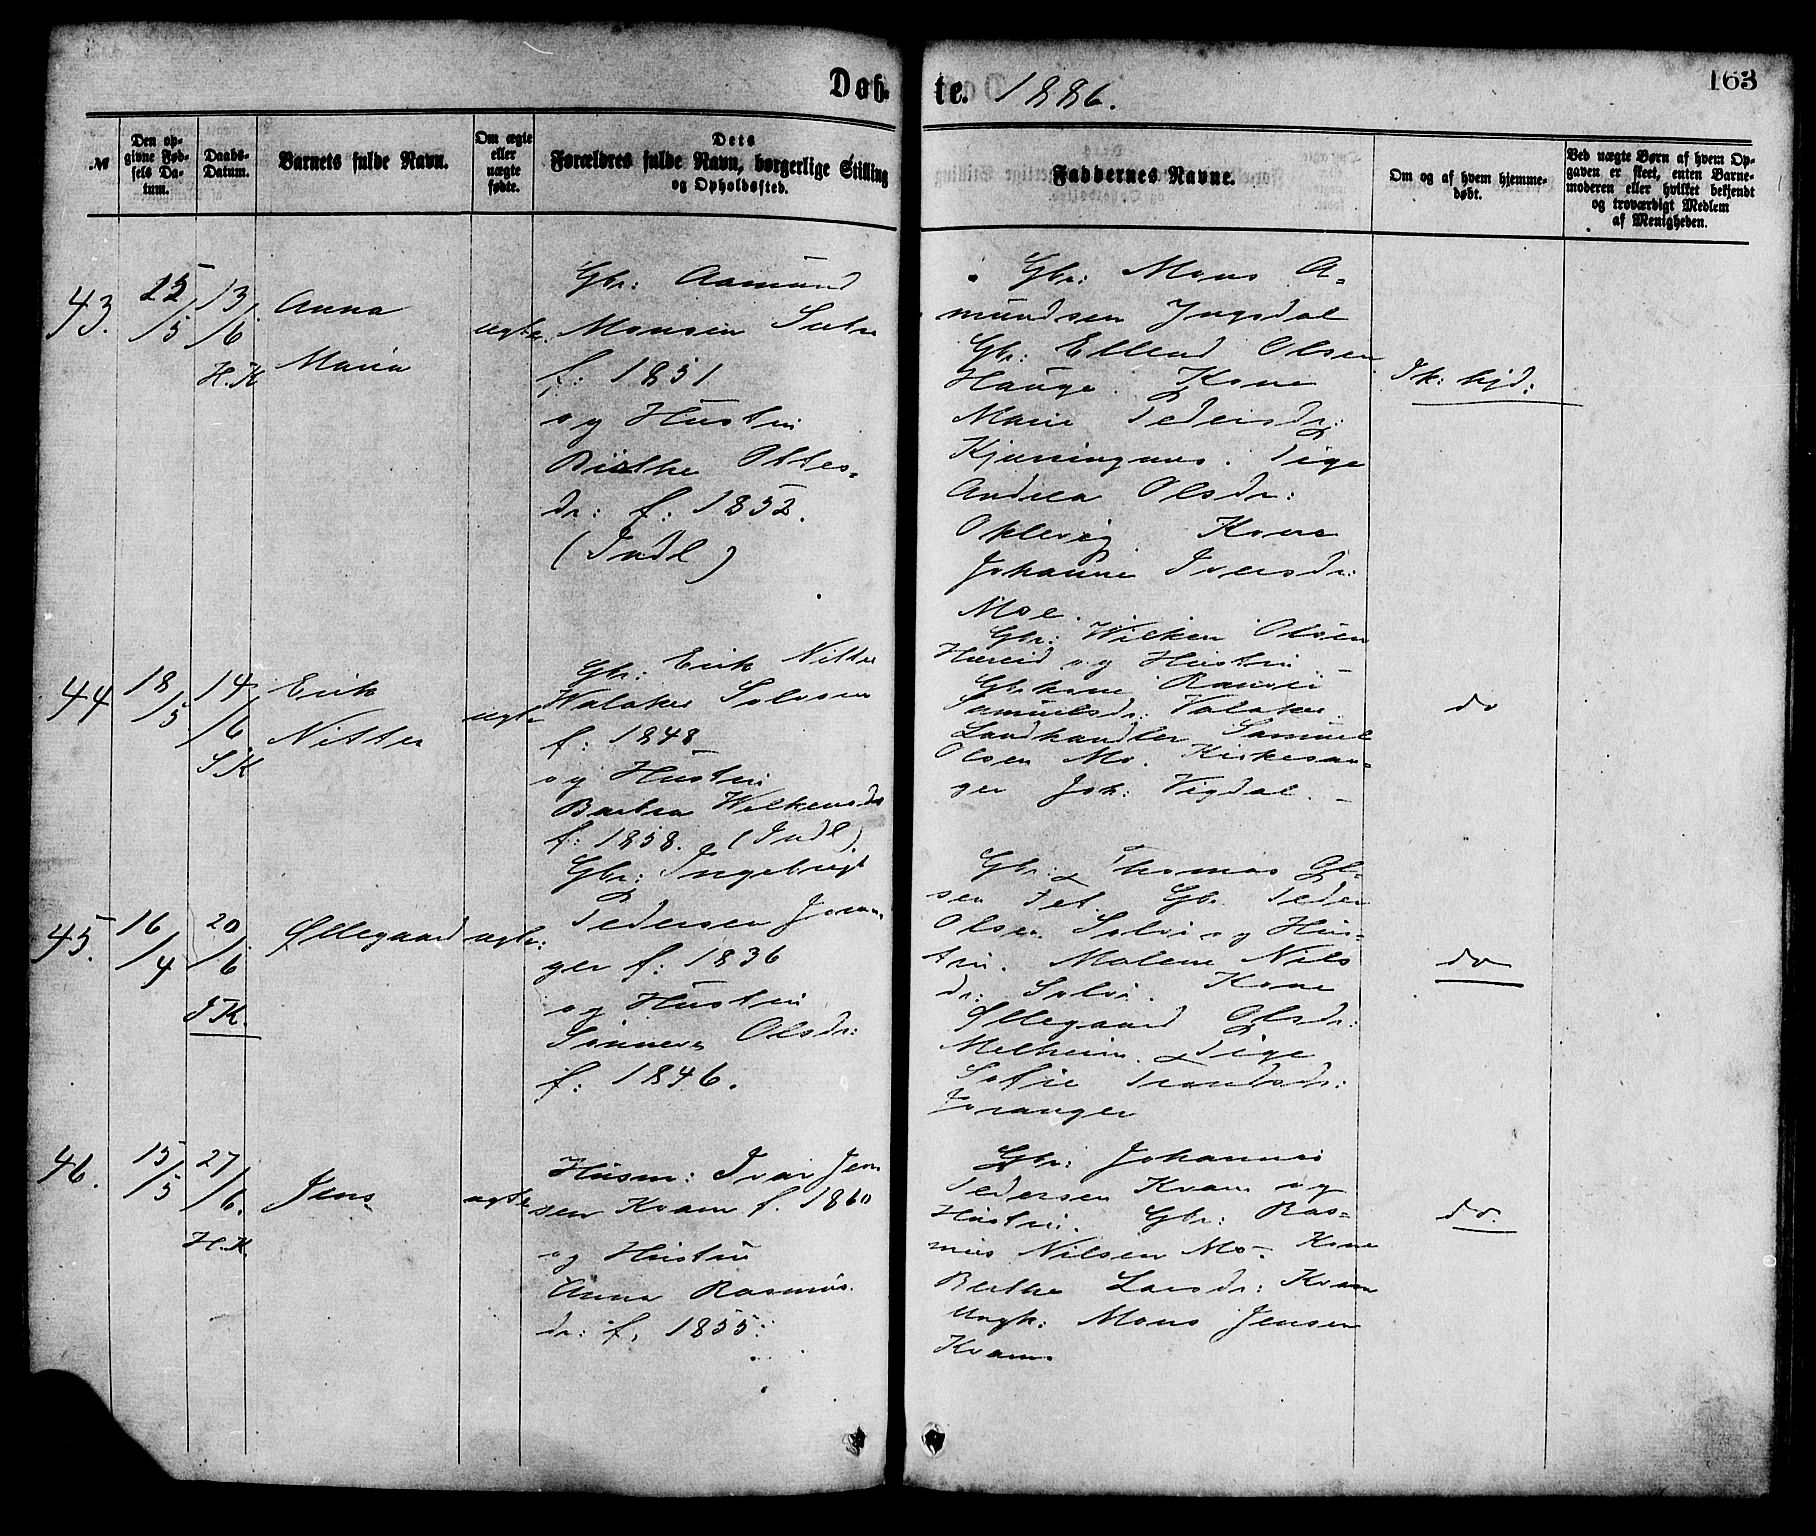 Døb-
te. 1886.
163
№
Den op-
givne Fød-
sels Da-
tum.
Daabs-
Datum.
Barnets fulde Navn.
Om ægte
eller
uægte
fødte.
Dets
Forældres fulde Navn, borgerlige Stilling
og Opholdssted.
Faddernes Navne.
Om og af hvem hjemme-
døbt.
Ved uægte Børn af hvem Op-
gaven er skeet, enten Barne-
moderen eller hvilket bekjendt
og troværdigt Medlem
af Menigheden.
43.
25/5
13/6.
H.K
Anna
Maria
ægte.
Gbr: Aamund
Monsen
f: 1851
og Hustru
Birthe Ottes-
dr: f: 1852.
(Indl)
Gbr: Mons A-
mundsen Yngsdal
Gbr: Ellend Olsen
Hauge. Kone
Marie Pedersdr:
Pige
Andrea Olsdr:
Oklevig Kone
Johanne Iversdr:
Moe.
Ik: hjd:
44
18/5
14/6.
S.K
Erik
Nitter
ægte
Gbr: Erik Nitter
Walaker Solvorn
f: 1848
og Hustru
Barbra Wilkensdr
f: 1858. (Indl)
Gbr: Wilken Olsen
Hæreid og Hustru –
Gbrkone
Samuelsdr: Valaker.
Landhandler Samuel
Olsen Mo. Kirkesan-
ger Joh: Vigdal. –
do
45.
16/4
20/6
J.K.
Øllegaard
ægte:
Gbr: Ingebrigt
Pedersen Joran-
ger f: 1836
og Hustru
Sønneva Olsdr:
f: 1846.
Gbr: Thomas Ol-
sen Fet. Gbr. Peder
Olsen Solvi og Hus-
tru. Malene Nils
dr: Solvi. Kone
Øllegaard Olsdr:
Melheim. Pige
Sofie Trondsdr:
Joranger
do
46.
15/5
27/6.
H.K.
Jens
ægte
Husm: Ivar Jen
sen Kvam f. 1860
og Hustru
Anna Rasmus.
dr: f. 1855:
Gbr: Johannes
Pedersen Kvam og
Hustru. Gbr: Ras-
mus Nilsen Mo. Kone
Berthe Larsdr: Kvam
Ungk: Mons Jensen
Kvam.
do.